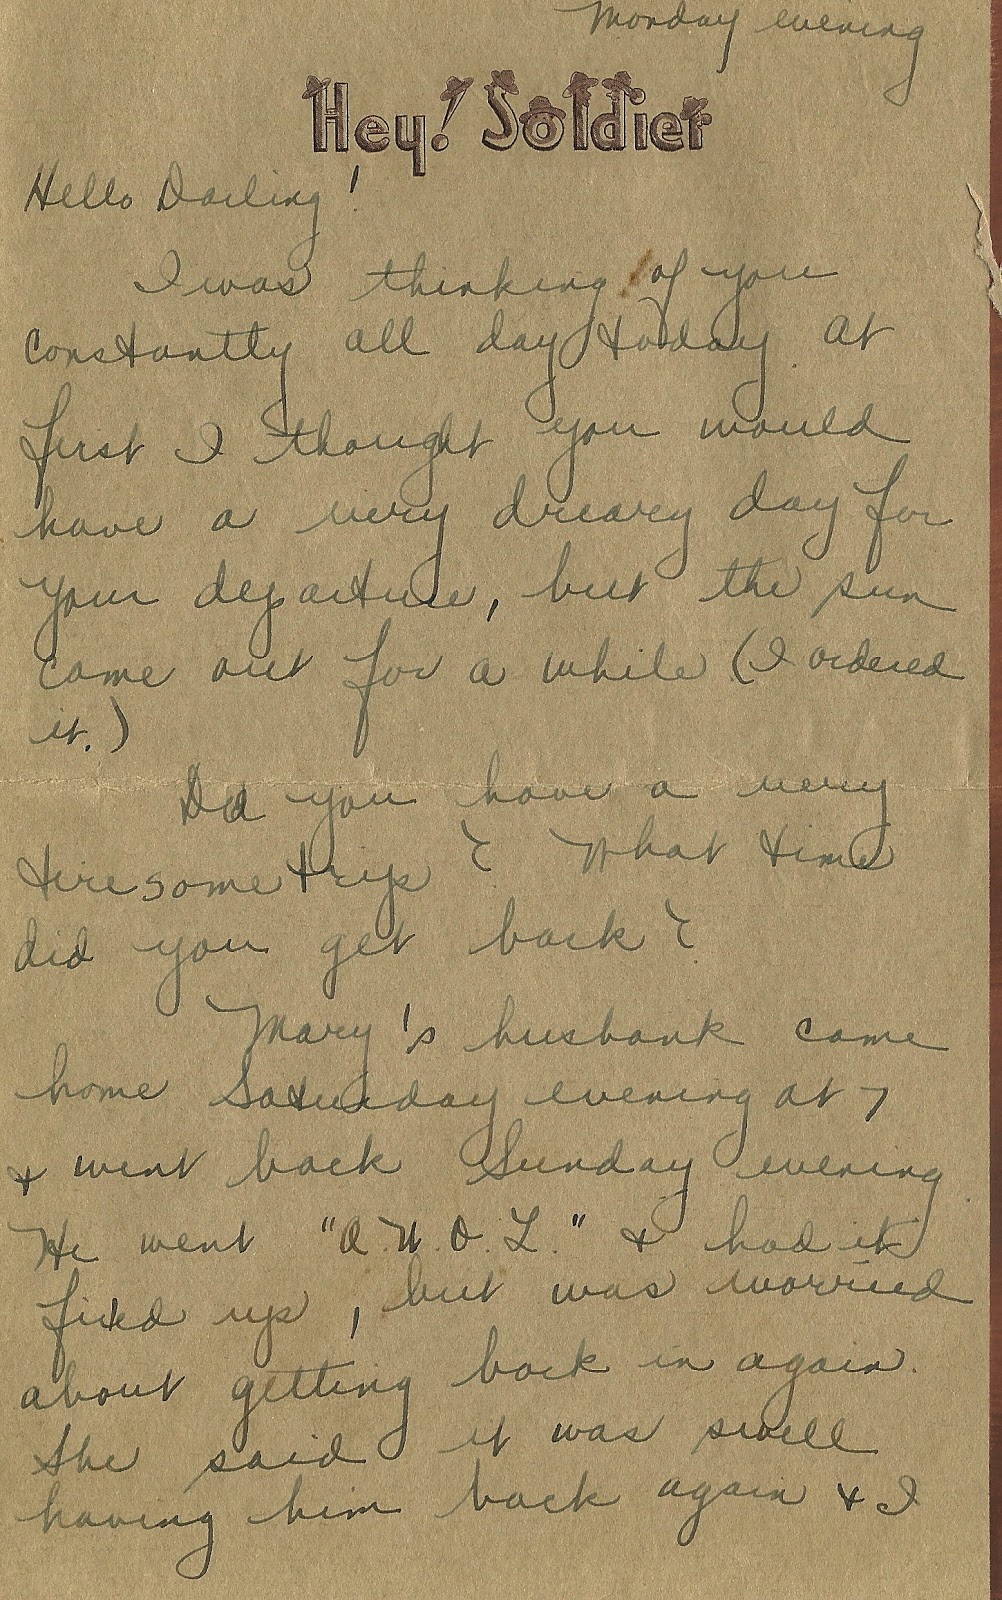 Monday evening
Hey! Soldier
Hello Darling!
I was thinking of you
constantly all day today. At
first I thought you would
have a very dreary day for
your departure, but the sun
came out for a while (I ordered
it.)
Did you have a very
tiresome trip? What time
did you get back?
Mary's husbank came
home Saturday evening at 7
& went back Sunday evening.
He went "A.W.O.L." & had it
fixed up, but was worried
about getting back in again.
She said it was swell
having him back again & I